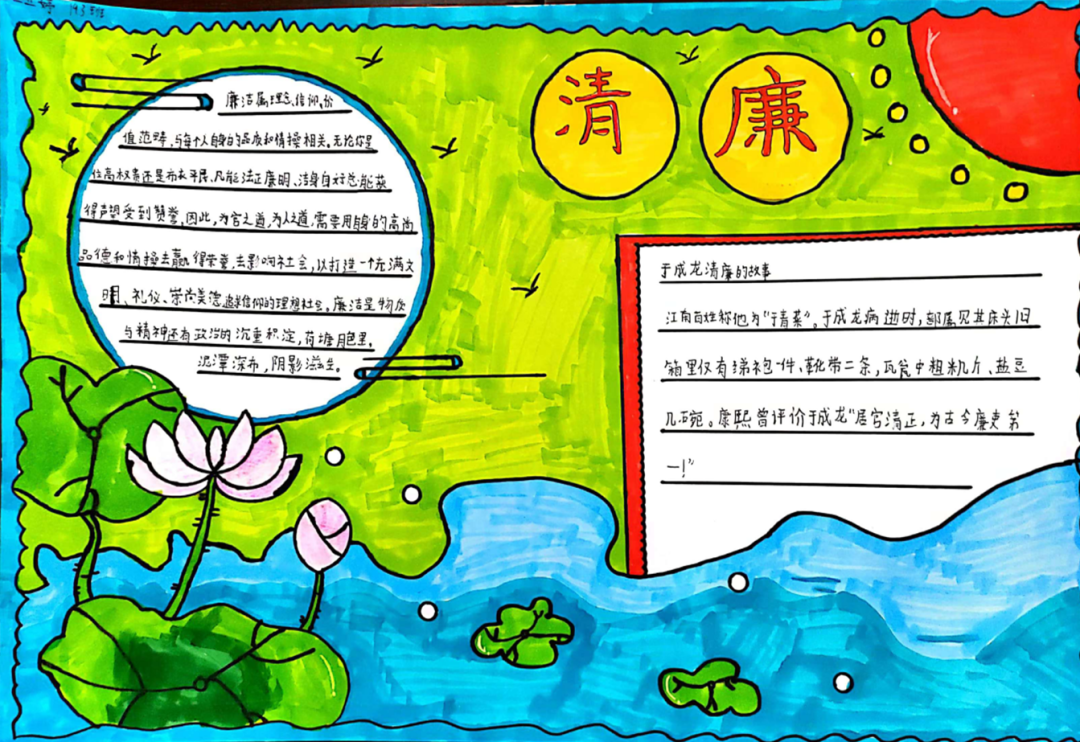 193班
清廉
廉洁属理念、信仰、价
值范畴、与每个人自身的品质和情操相关。无论你是
位高权贵还是布衣平民、凡能法正廉明、洁身自好总能获
得声望受到赞誉。因此，为官之道，为人之道，需要用自身的高尚
品德和情操去赢得荣誉，去影响社会，以打造一个充满文
明、礼仪、崇尚美德、追求信仰的理想社会。廉洁是物质
与精神还有政治的沉重积淀，荷塘月色里。
泥潭深布，阴影滋生。
于成龙清廉的故事
江南百姓称他为“于青菜”。于成龙病逝时，部属见其床头旧
箱里仅有绨袍一件、靴带二条，瓦瓮中粗籼几斤、盐豆
几碗。康熙曾评价于成龙“居官清正，为古今廉吏第
一！”